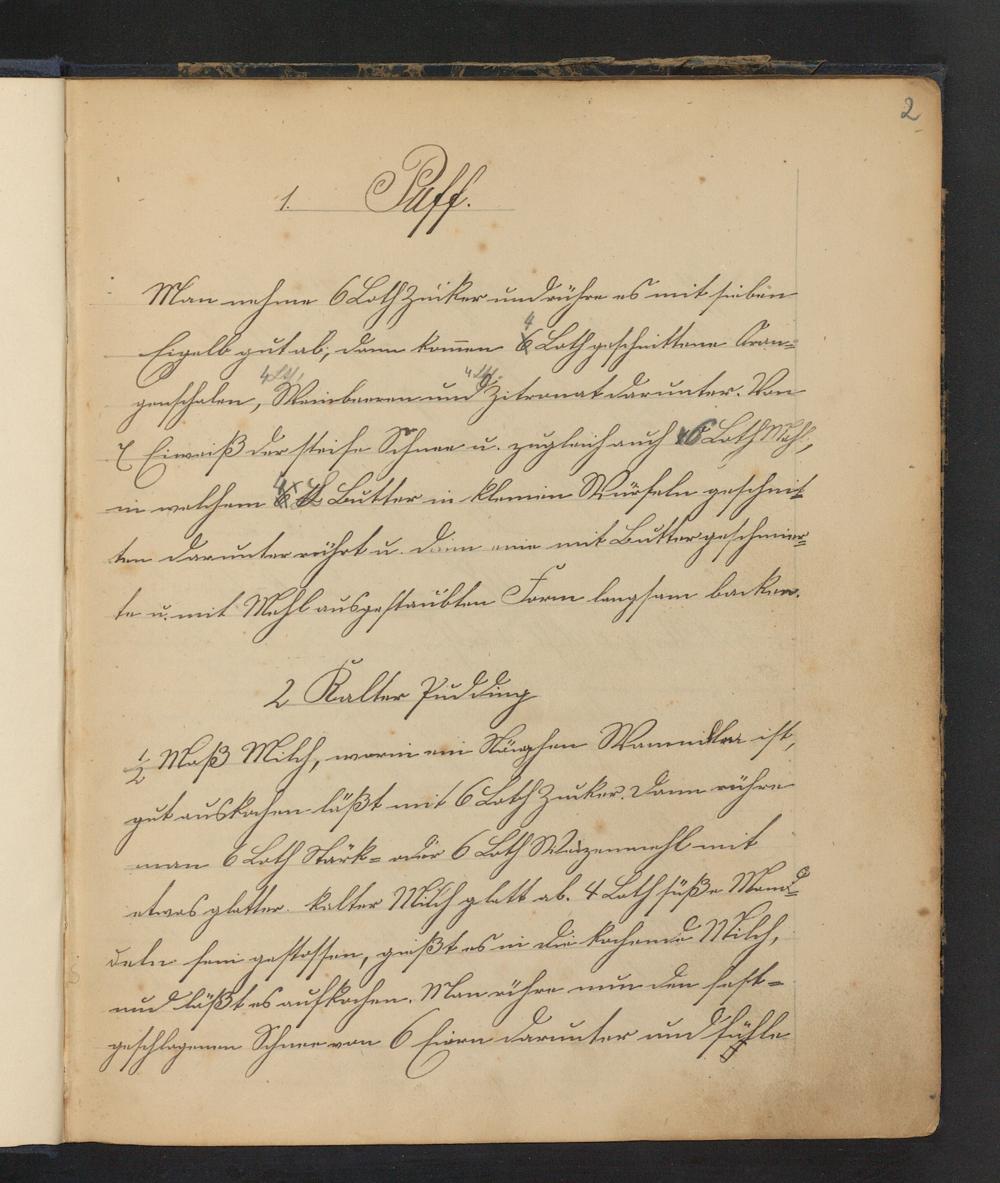 2
1. Puff.
Man nehme 6 Loth Zucker und rühre es mit sieben
4
Eigelb gut ab, dann kom̅en 6 Loth geschnittene Oran=
4 Lth. 4 Lth.
genschalen, Weinbeeren und Zitronat darunter. Von
7 Eiweiß der steife Schnee u. zugleich auch 6 Loth Mehl,
4
in welchem 6 Butter in kleinen Würfeln geschnit
ten darunter rührt u. dann eine mit Butter geschmier=
te u. mit Mehl ausgestaubten Form langsam backen.
2 Kalter Pudding
½ Maß Milch, worin ein Stängchen ist,
gut auskochen läßt mit 6 Loth Zucker. Dann rühre
man 6 Loth Stärk= oder 6 Loth Weizenmehl mit
etwas glatter kalter Milch glatt ab. 4 Loth süße Man=
deln fein gestossen, gießt es in die kochende Milch,
und läßt es aufkochen. Man rühre nun den fest=
geschlagenen Schnee von 6 Eiern darunter und fühle